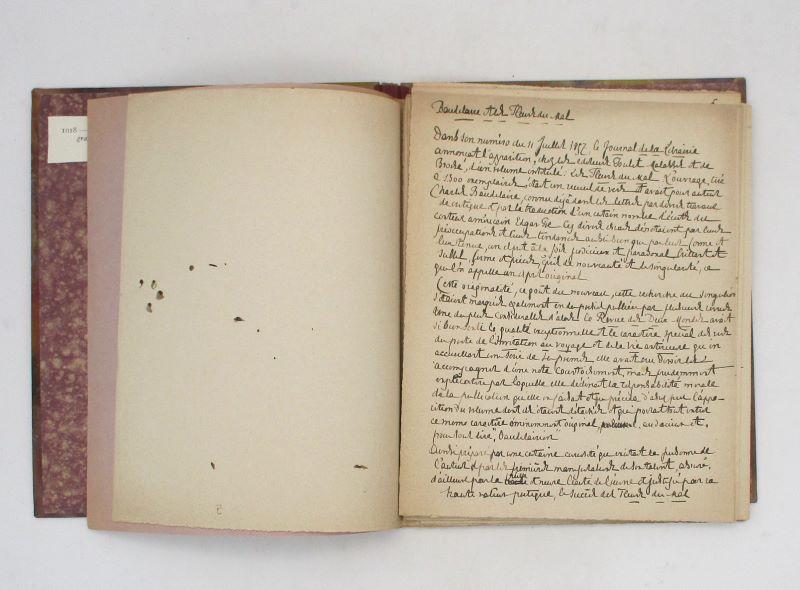 1018 —
gra
Baudelaire et les Fleurs du mal
Dans son numéro du 11 Juillet 1857, le Journal de la Librairie
annonçait l'apparition, chez les éditeurs Poulet Malassis et de
Broise, d'un volume intitulé: Les Fleurs du mal. L'ouvrage, tiré
à 1300 exemplaires, était un recueil de vers et avait pour auteur
Charles Baudelaire, connu déjà dans les lettres par divers travaux
de critique et par la traduction d'un certain nombre d'écrits du
conteur américain Edgar Poe. Ces divers essais dénotaient par leurs
préoccupations et leurs tendances aussi bien que par leur forme et
leur tenue, un esprit à la fois judicieux et paradoxal, et
subtil, ferme et précis, épris de nouveauté et de singularité, ce
que l'on appelle un esprit original
Cette originalité, ce goût du nouveau, cette recherche du singulier
s'étaient marqués également en des poésies publiées par plusieurs revues
La Revue des Deux-Mondes avait
si bien senti la qualité exceptionnelle et le caractère spécial des vers
du poète de l'invitation au voyage et de la vie antérieure qu'en
accueillant une série de ses poèmes, elle avait cru devoir les
accompagner d'une note courtoisement, mais prudemment
explicative par laquelle elle déclinait la responsabilité morale
de la publication qu'elle en faisait et qui précéda d'assez peu l'appa-
rition du volume dont ils étaient détachés et qui portait tout entier
ce même caractère éminemment original, audacieux et,
pour tout dire, "Baudelairien"
Ainsi préparé par une certaine curiosité qu'excitait la personne de
l'auteur et par les premières manifestations de son talent, assuré,
d'ailleurs par la haute et neuve beauté de l'œuvre et justifié par sa
haute valeur poétique, le succès des Fleurs du mal